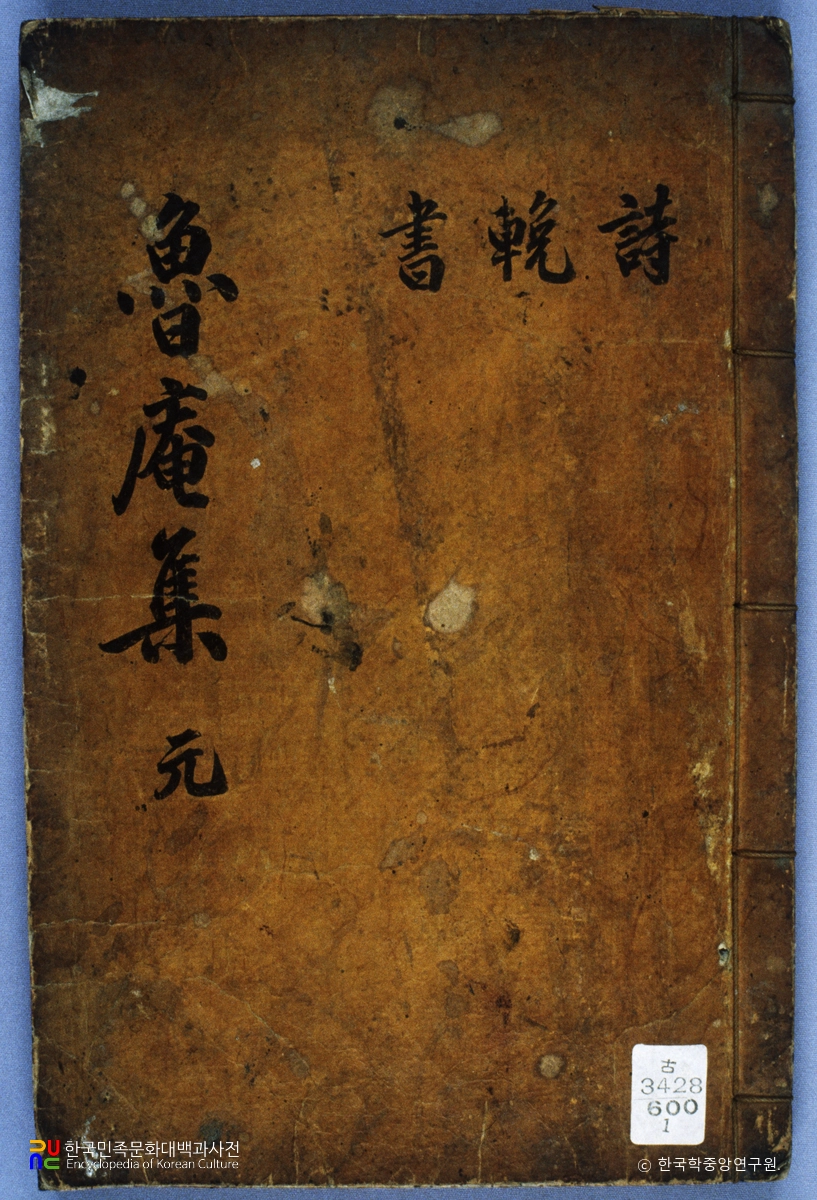 詩
輓
書
魯庵集 元
古
3428
600
1
한국민족문화대백과사전
Encyclopedia of Korean Culture
ⓒ 한국학중앙연구원